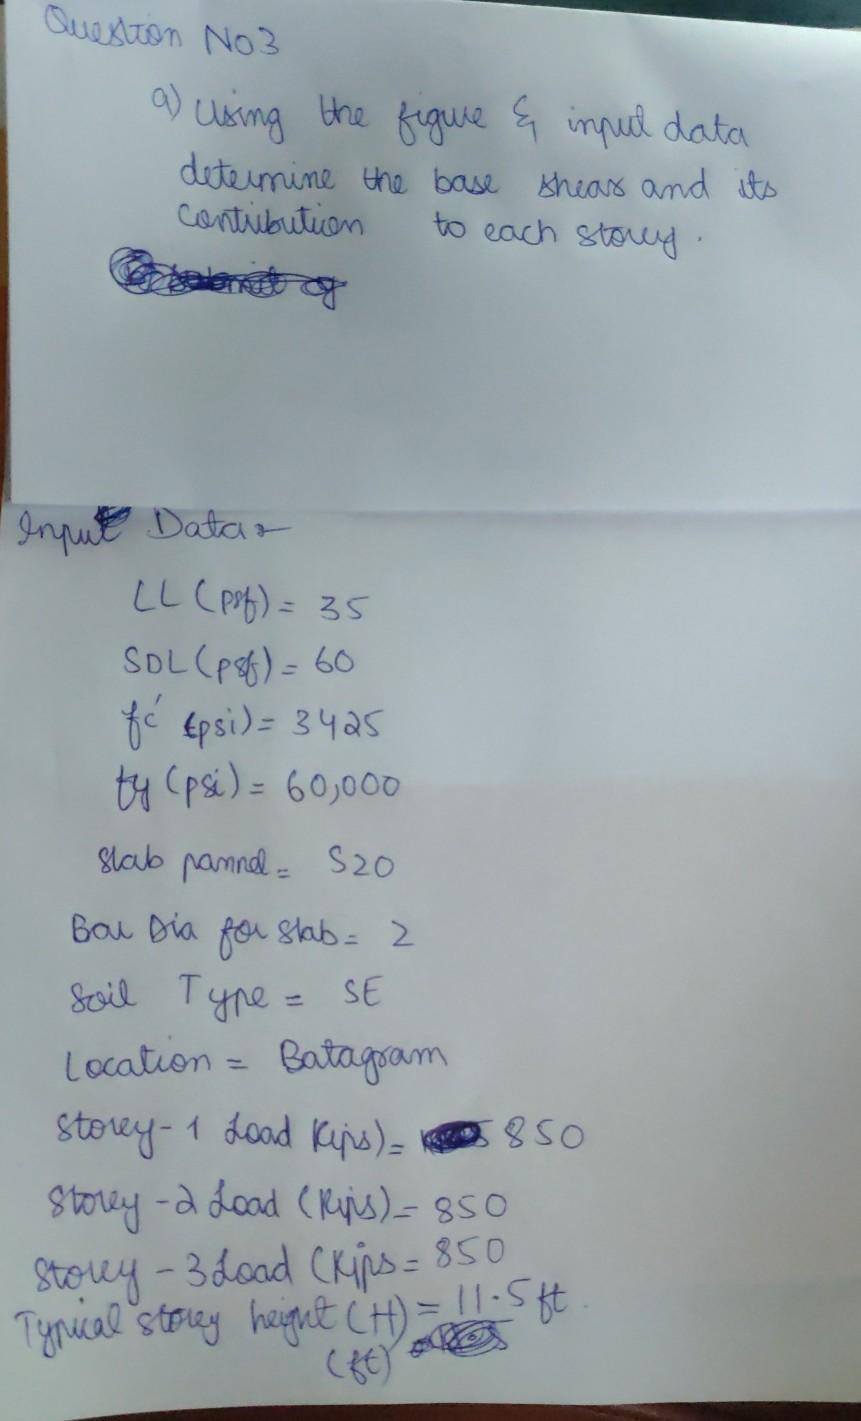 Question No3
a) Using the figure & input data
determine the base shear and its
Contribution to each storey.
Input Data :-
LL (psf) = 35
SDL (psf) = 60
fc' (psi) = 3425
fy (psi) = 60,000
Slab pannel = S20
Bar Dia for slab = 2
Soil Type = SE
Location = Batagram
Storey - 1 Load Kips) = 850
Storey - 2 Load (Kips) = 850
Storey - 3 Load (Kips = 850
Typical storey height (H) = 11.5 ft.
(ft)